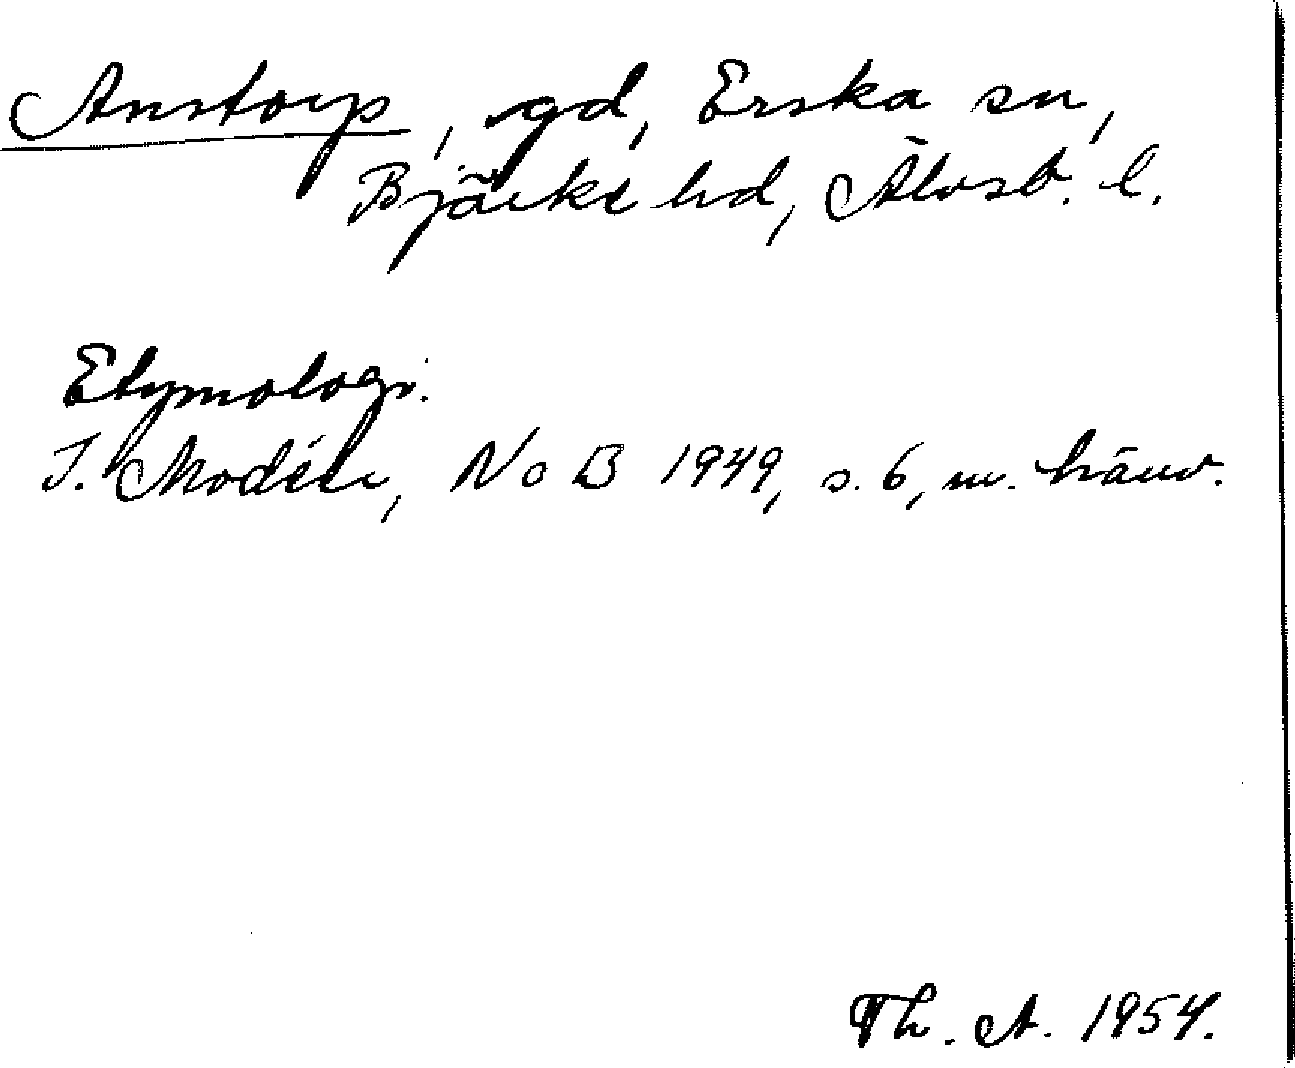 Anstorp, gd, Erska sn,
Bjärke hd, Älvsb. l.
Etymologi:
I. Modéer, NoB 1949, s. 6, m. hänv.
Th. A. 1954.